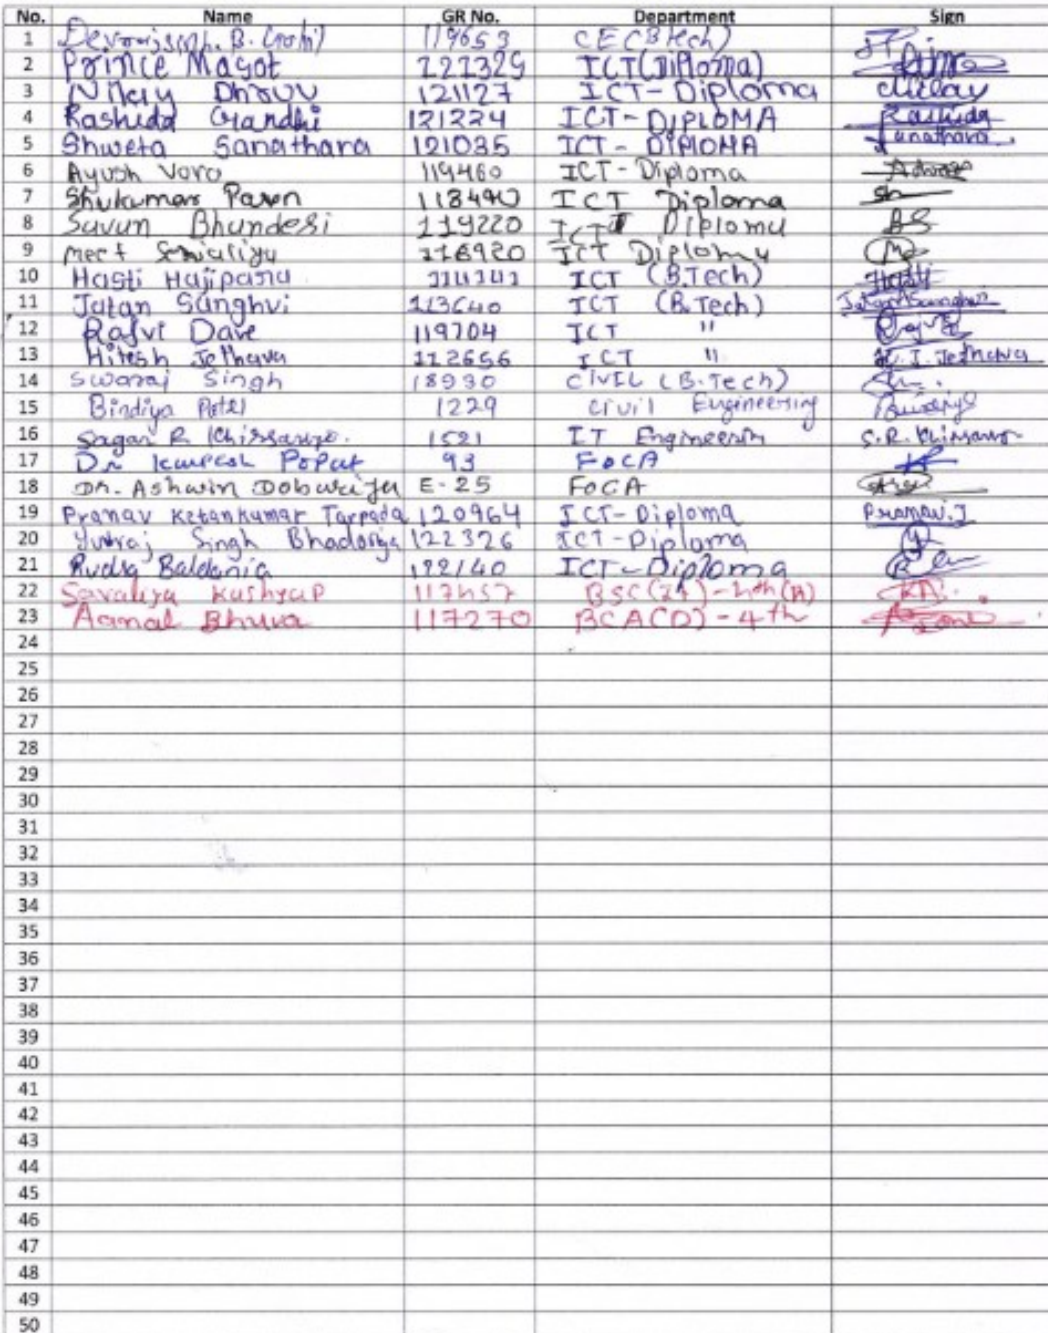 No. Name GR No. Department Sign
1 Devrajsinh. B. Gohil 119653 CE(BTech)
2 Prince Magot 121329 ICT(Diploma) Prince
3 Nilay Dhruv 121127 ICT-Diploma Nilay
4 Rashida Gandhi 121224 ICT-DIPLOMA Rashida
5 Shweta Sanathara 121035 ICT-DIPlOMA Sanathara
6 Ayush Vora 119460 ICT-Diploma
7 Shukumar Paren 118490 ICT Diploma Sh
8 Savan Bhundesi 119220 ICT Diploma BS
9 meet 116920 ICT Diploma
10 Hasti Hajipara 114141 ICT (B.Tech) Hasti
11 Jatan Sanghvi 113640 ICT (B.Tech) Jatan Sanghvi
12 Rajvi Dave 119704 ICT "
13 Hitesh Jethava 112656 ICT " H. I. Jethava
14 Swaraj Singh 18930 CIVIL (B.Tech)
15 Bindiya Patel 1229 Civil Engineering
16 Sagar R Khirsariya. 1521 IT Engineerin
17 Dr Popat 93 FoCA
18 Dr. Ashwin Dobariya E-25 FoCA
19 Pranav Ketankumar Tarpada 120964 ICT-Diploma Pranav.J
20 Yuvraj Singh Bhadoriya 122326 ICT-Diploma
21 Rudra Baldania 122140 ICT-Diploma
22 Savaliya Kushyap 117457
23 Aamal Bhuva 117270 BCA(D)-4th
24
25
26
27
28
29
30
31
32
33
34
35
36
37
38
39
40
41
42
43
44
45
46
47
48
49
50